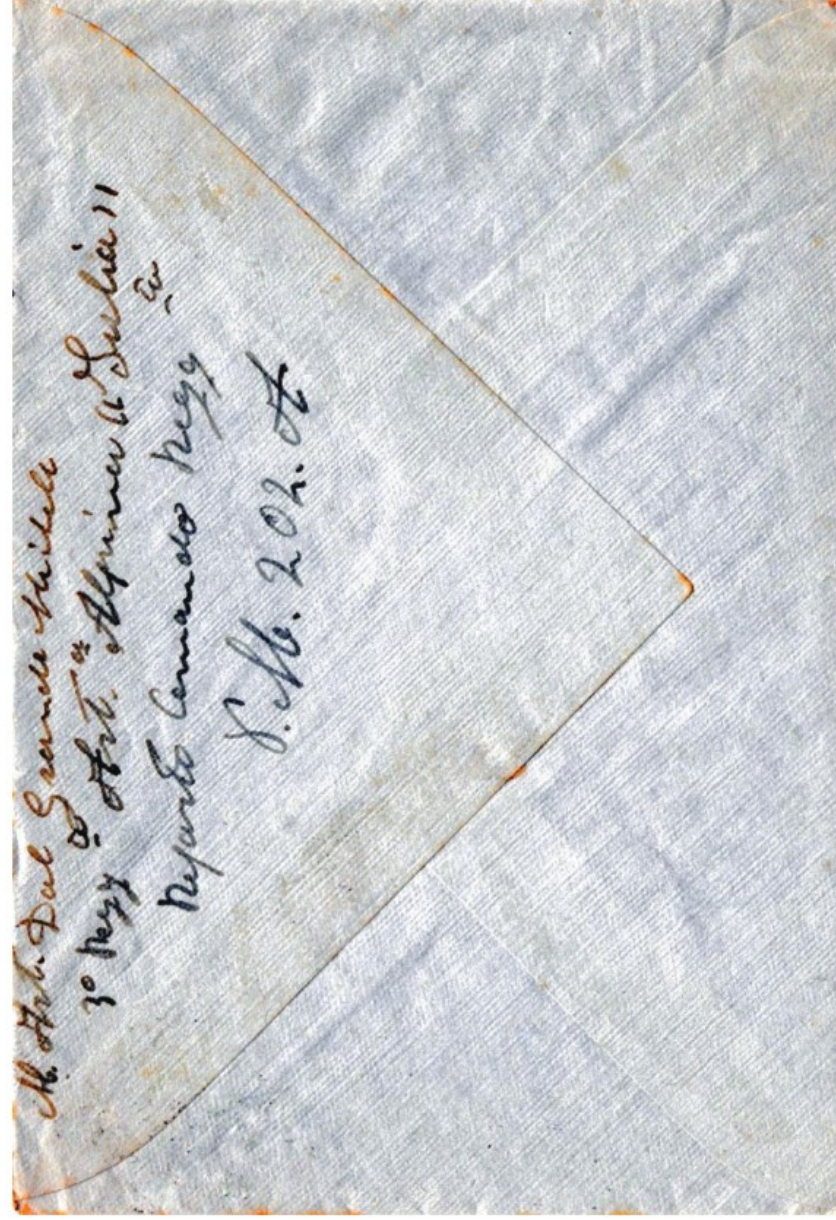 M. Art. Dal Grande Michele
3º Regg to Art. a Alpina "Julia"
Reparto Comando Regg to
P. M. 202. A